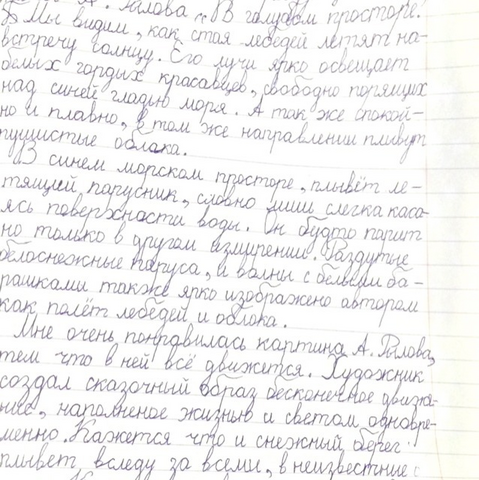 А. Рылова „В голубом просторе".
Мы видим, как стая лебедей летят на-
встречу солнцу. Его лучи ярко освещает
белых гордых красавцев, свободно парящих
над синей гладью моря. А так же спокой-
но и плавно, в том же направлении плывут
пушистые облака.
В синем морском просторе, плывёт ле-
тящий парусник, словно лишь слегка каса-
ясь поверхности воды. Он будто парит
но только в другом измерении. Раздутые
белоснежные паруса, и волны с белыми ба-
рашками также ярко изображено автором
как полёт лебедей и облока.
Мне очень понравилась картина А. Рылова,
тем что в ней всё движется. Художник
создал сказочный образ бесконечное движе-
ние, наполненое жизнью и светом одновре-
менно. Кажется что и снежный берег
плывет вследу за всеми, в неизвестные